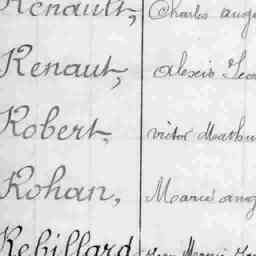 Renault, Charles aug
Renaut, alexis Leo
Robert, victor Mathu
Rohan, Marie ang
Rebillard